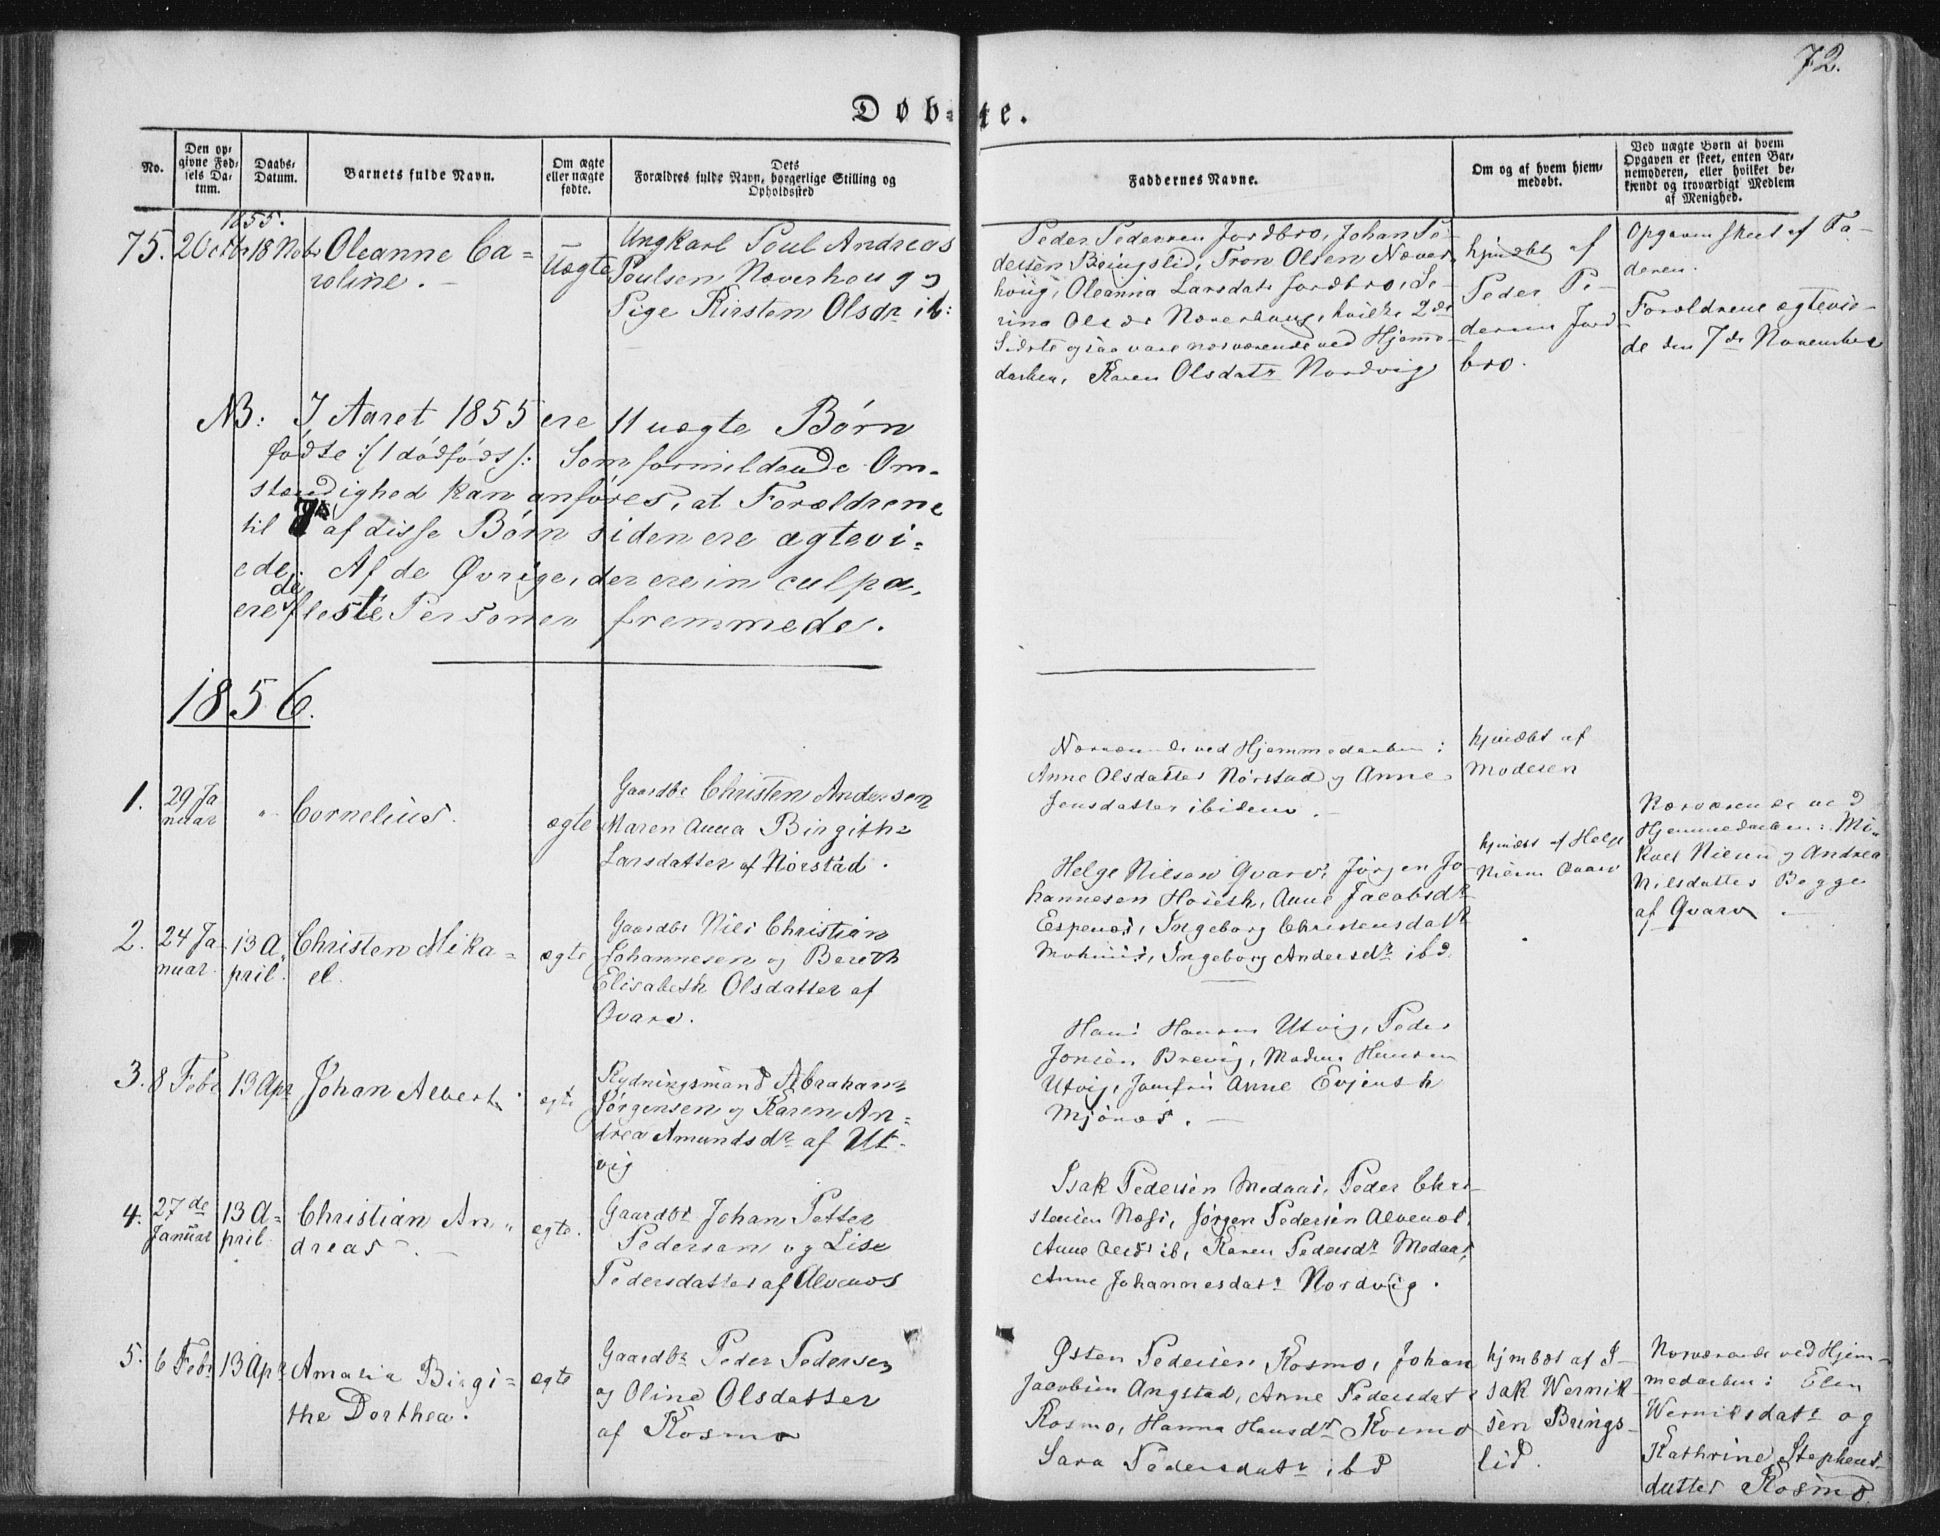 72.
Døb-te.
No.
Den op-
givne Fød-
sels Da-
tum.
Daabs-
Datum.
Barnets fulde Navn.
Om ægte
eller uægte
fødte.
Dets
Forældres fulde Navn, borgerlige Stilling og
Opholdssted
Faddernes Navne.
Om og af hvem hjem-
medøbt.
Ved uægte Børn af hvem
Opgaven er skeet, enten Bar-
nemoderen, eller hvilket be-
kjendt og troværdigt Medlem
af Menighed.
1855.
75. 2 Octbr 18 Novbr Oleanne Ca=
roline.
Uægte
Ungkarl Poul Andreas
Poulsen Næverhoug og
Pige Kirsten Olsdr ib:
Peder Pedersen Jordbro, Johan Pe-
dersen Bringslid, Tron Olsen Næver
houg, Oleanna Larsdatr Jordbro, Se-
rina Olsdr Næverhoug, hvilke 2de
Sidste ogsaa vare nærværende ved Hjemme-
daaben, Karen Olsdatr Nordvig
hjmdøbt af
Peder Pe-
dersen Jord
bro.
Opgaven skeet af Fa-
deren.
Forældrene ægtevie-
de den 7de November
NB: I Aaret 1855 ere 11 uægte Børn
fødte :/1 dødfødt/: Som formildende Om-
stændighed kan anføres, at Forældrene
til af disse Børn siden ere ægtevi=
ede. Af de Øvrige, der ere in culpa,
ere de fleste Personer fremmede.
1856.
1. 29 Ja
nuar
"
Cornelius.
ægte
Gaardbr Christen Andersen
Maren Anna Birgithe
Larsdatter af Nørstad.
Nærværende ved Hjemmedaaben:
Anne Olsdatter Nørstad og Anne
Jensdatter ibidem.
hjmdøbt af
Moderen
2. 24 Ja
nuar
13 A
pril.
Christen Mika=
el.
ægte
Gaardbr Niels Christian
Johannesen og Bereth
Elisabeth Olsdatter af
Qvarv.
Helge Nilsen Qvarv, Jørgen Jo-
hannesen Hoseth, Anne Jacobsdr
Espenes, Ingeborg Christensdatr
Ingeborg Andersdr ibd.
hjmdøbt af Helge
Nilsen Qvarv
Nærværende ved
Hjemmedaaben: Mi-
kael Nilsen og Andrea
Nilsdatter Begge
af Qvarv.
3. 8 Febr 13 Apr
Johan Albert
ægte
Rydningsmand Abraham
Jørgensen og Karen An=
drea Amundsdr af Ut-
vig
Hans Hansen Utvig, Peder
Jonsen Brevig, Madme Hansen
Utvig, Jomfru Anne Evjenth
Mjønes.
4. 27de
Januar
13 A=
pril
Christian An=
dreas.
ægte.
Gaardbr Johan Petter
Pedersen og Lise
Pedersdatter af Alvenes
Isak Pedersen Medaas, Peder Chri-
stensen Næss, Jørgen Pedersen Alvenes,
Anne ib, Karen Pedersdr Medaas,
Anne Johannesdatr Nordvig.
5. 6 Febr 13 Apr
Amalia Birgi=
the Dorthea.
ægte
Gaardbr Peder Pedersen
og Oline Olsdatter
af Kosmo
Østen Pedersen Kosmo, Johan
Jacobsen Angstad, Anne Pedersdatr
Kosmo, Hanna Hansdr Kosmo
Sara Pedersdatr ibd
hjmbøt af I-
sak Wernik-
sen Brings-
lid.
Nærværende ved Hjem-
medaaben: Elen
Werniksdatr og
Kathrine Stephens-
datter Kosmo.